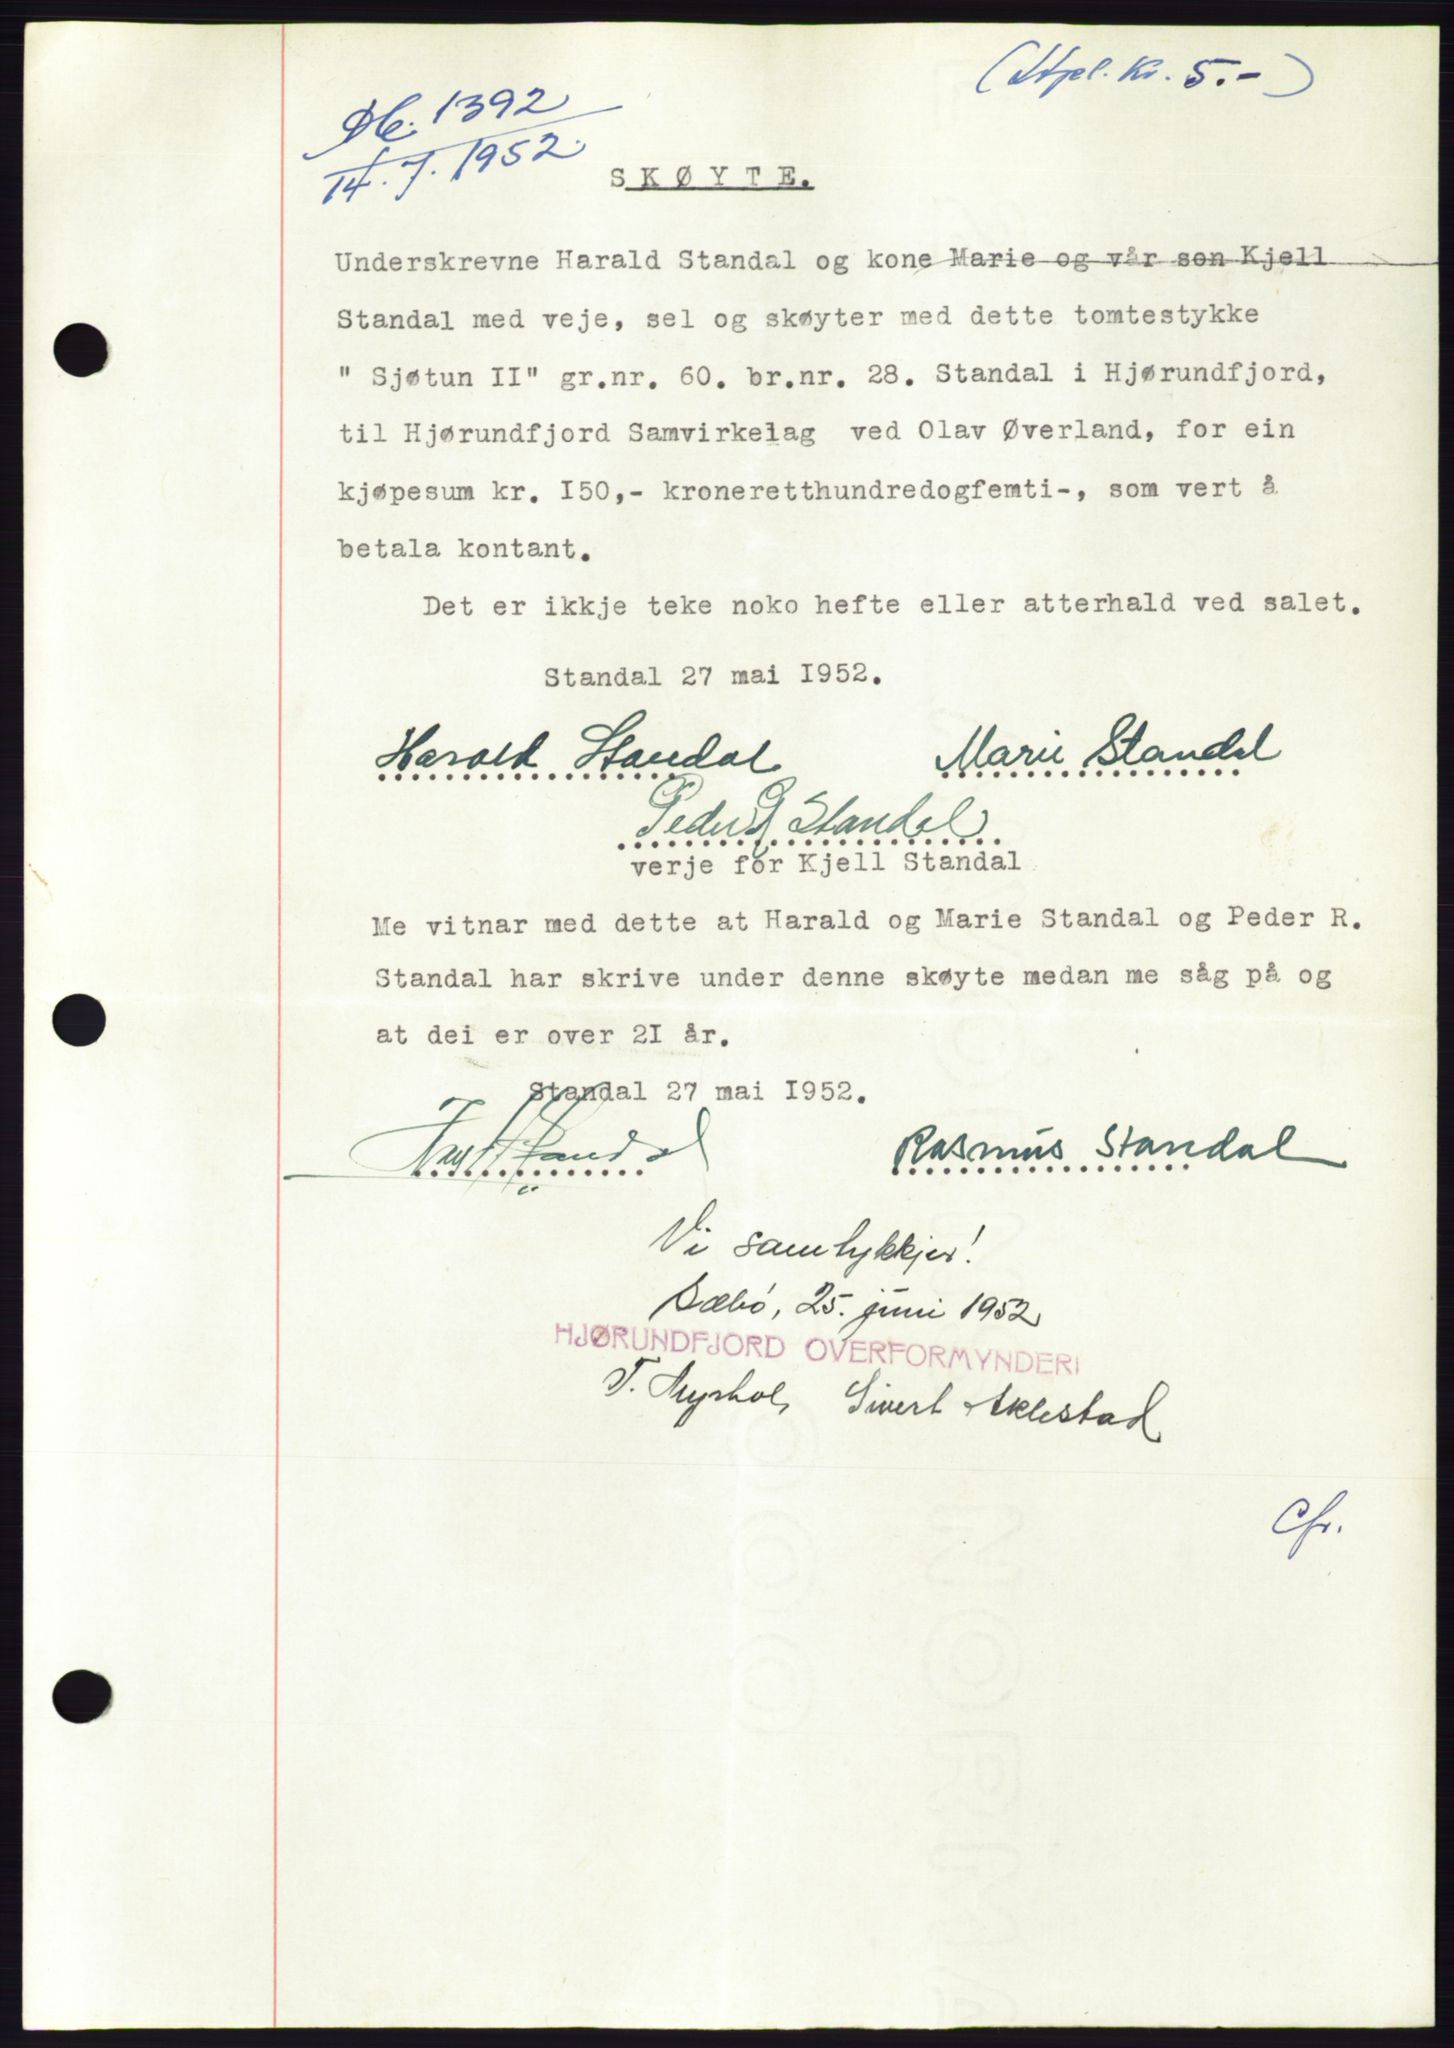 (Stpl. Kr. 5.-)
Db. 1392
14.7.1952.
SKØYTE.
Underskrevne Harald Standal og kone Marie og vår son Kjell
Standal med veje, sel og skøyter med dette tomtestykke
" Sjøtun II" gr.nr. 60. br.nr. 28. Standal i Hjørundfjord,
til Hjørundfjord Samvirkelag ved Olav Øverland, for ein
kjøpesum kr. I50,- kroneretthundredogfemti-, som vert å
betala kontant.
Det er ikkje teke noko hefte eller atterhald ved salet.
Standal 27 mai I952.
Harald Standal Marie Standal
Peder R Standal
verje for Kjell Standal
Me vitnar med dette at Harald og Marie Standal og Peder R.
Standal har skrive under denne skøyte medan me såg på og
at dei er over 2I år.
Standal 27 mai I952.
Standal Rasmus Standal
Vi samtykkjer!
Sæbø, 25. juni 1952
HJØRUNDFJORD OVERFORMYNDERI
T. Myrhol, Sivert Aklestad
Cfr.